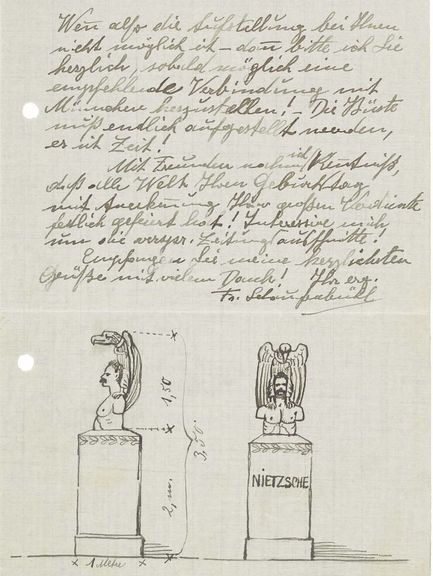 Wen also die Aufstellung bei Ihnen
nicht möglich ist – dan bitte ich Sie
herzlich, sobald möglich eine
empfehlende Verbindung mit
München herzustellen! – Die Büste
muß endlich aufgestellt werden,
es ist Zeit!
Mit Freuden nahm ich Kentniß,
daß alle Welt Ihren Geburtstag
mit Anerkennung Ihrer großen Verdienste
festlich gefeiert hat! Interessire mich
um die verspr. Zeitungsausschnitte!
Empfangen Sie meine herzlichsten
Grüße mit vielem Dank! Ihr erg.
Fr.
1,50
3,50.
2, m.
1 Meter
NIETZSCHE